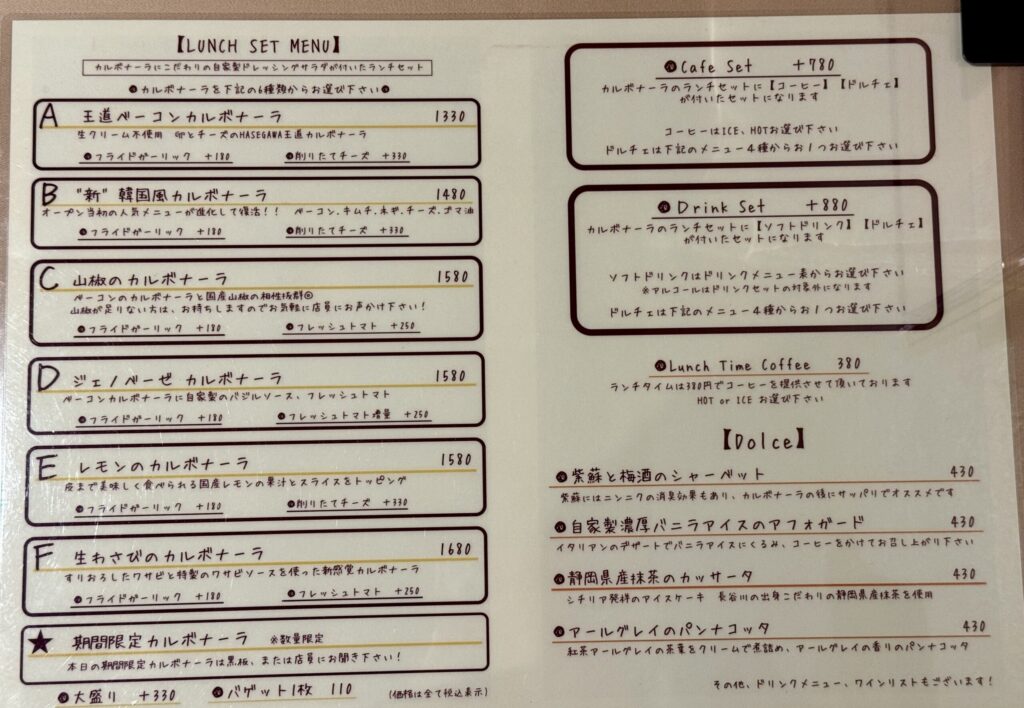 【LUNCH SET MENU】
カルボナーラにこだわりの自家製ドレッシングサラダが付いたランチセット
カルボナーラを下記の6種類からお選び下さい
A 王道ベーコンカルボナーラ 1330
生クリーム不使用 卵とチーズのHASEGAWA王道カルボナーラ
フライドガーリック +180 削りたてチーズ +330
B "新" 韓国風カルボナーラ 1480
オープン当初の人気メニューが進化して復活!! ベーコン.キムチ.ネギ.チーズ.ゴマ油
フライドガーリック +180 削りたてチーズ +330
C 山椒のカルボナーラ 1580
ベーコンのカルボナーラと国産山椒の相性抜群◎
山椒が足りない方は、お持ちしますのでお気軽に店員にお声かけ下さい!
フライドガーリック +180 フレッシュトマト +250
D ジェノベーゼ カルボナーラ 1580
ベーコンカルボナーラに自家製のバジルソース、フレッシュトマト
フライドガーリック +180 フレッシュトマト増量 +250
E レモンのカルボナーラ 1580
皮まで美味しく食べられる国産レモンの果汁とスライスをトッピング
フライドガーリック +180 削りたてチーズ +330
F 生わさびのカルボナーラ 1680
すりおろしたワサビと特製のワサビソースを使った新感覚カルボナーラ
フライドガーリック +180 フレッシュトマト +250
★ 期間限定カルボナーラ ※数量限定
本日の期間限定カルボナーラは黒板、または店員にお聞き下さい!
大盛り +330 バゲット1枚 110 (価格は全て税込表示)
Cafe Set +780
カルボナーラのランチセットに【コーヒー】【ドルチェ】
が付いたセットになります
コーヒーはICE、HOTお選び下さい
ドルチェは下記のメニュー4種からお1つお選び下さい
Drink Set +880
カルボナーラのランチセットに【ソフトドリンク】【ドルチェ】
が付いたセットになります
ソフトドリンクはドリンクメニュー表からお選び下さい
※アルコールはドリンクセットの対象外になります
ドルチェは下記のメニュー4種からお1つお選び下さい
Lunch Time Coffee 380
ランチタイムは380円でコーヒーを提供させて頂いております
HOT or ICE お選び下さい
【Dolce】
紫蘇と梅酒のシャーベット 430
紫蘇にはニンニクの消臭効果もあり、カルボナーラの後にサッパリでオススメです
自家製濃厚バニラアイスのアフォガード 430
イタリアンのデザートでバニラアイスにくるみ、コーヒーをかけてお召し上がり下さい
静岡県産抹茶のカッサータ 430
シチリア発祥のアイスケーキ 長谷川の出身こだわりの静岡県産抹茶を使用
アールグレイのパンナコッタ 430
紅茶アールグレイの茶葉をクリームで煮詰め、アールグレイの香りのパンナコッタ
その他、ドリンクメニュー、ワインリストもございます!